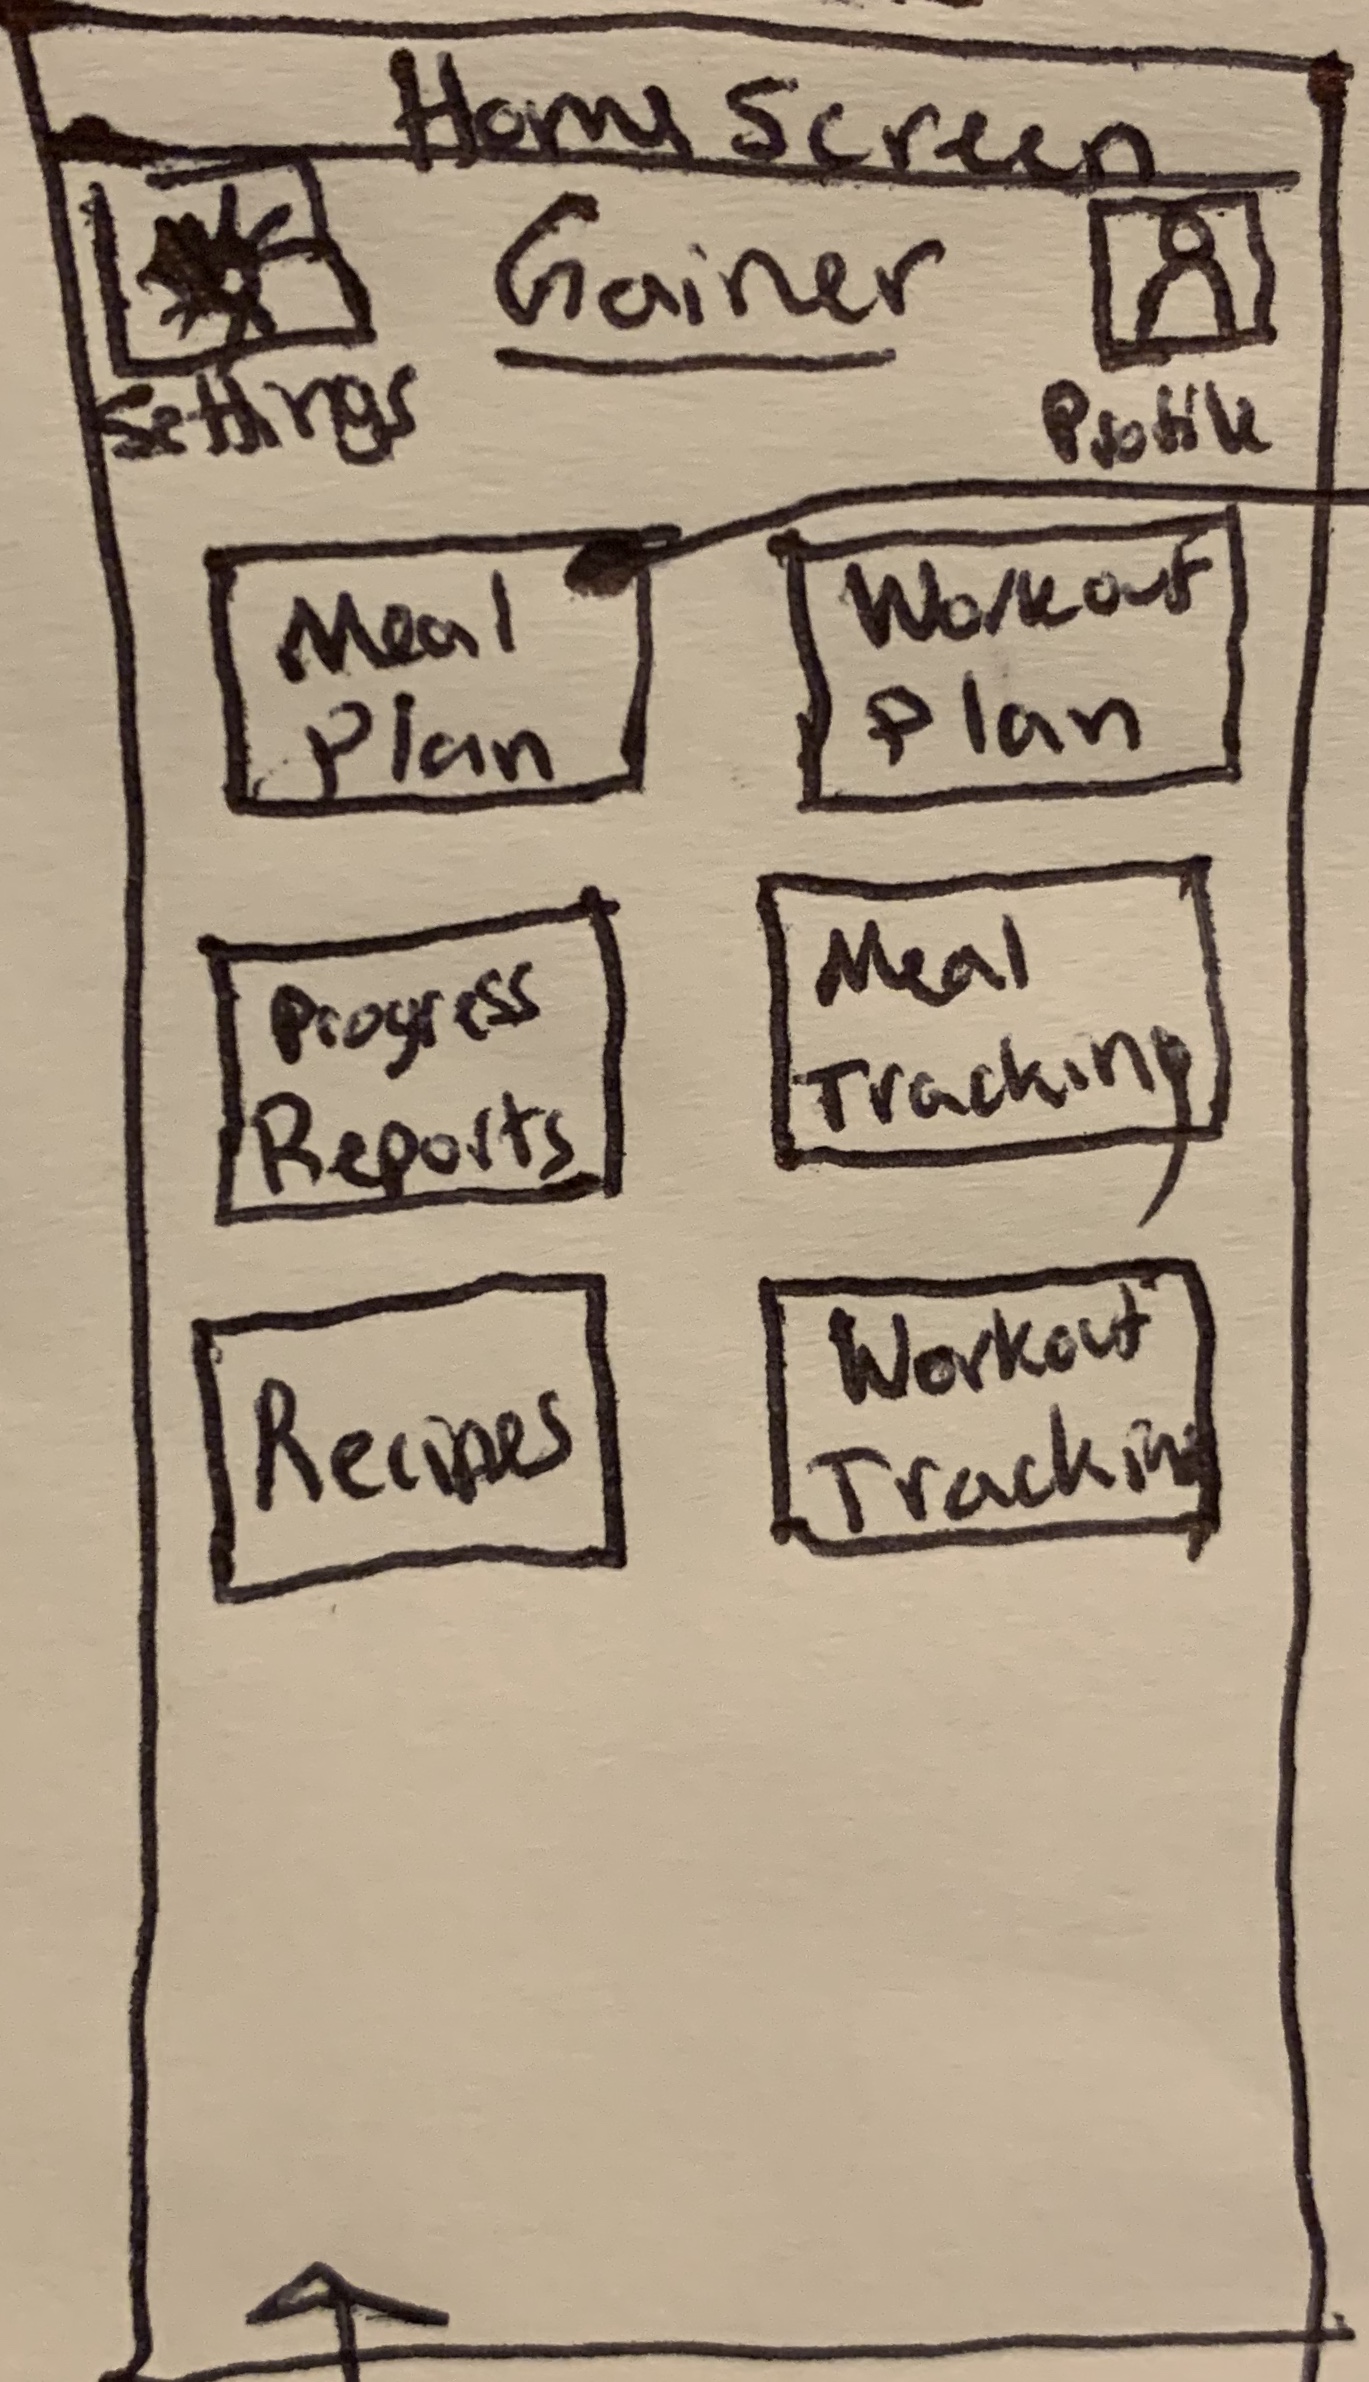 Home Screen
Gainer
Settings
Profile
Meal
Plan
Workout
Plan
Progress
Reports
Meal
Tracking
Recipes
Workout
Tracking